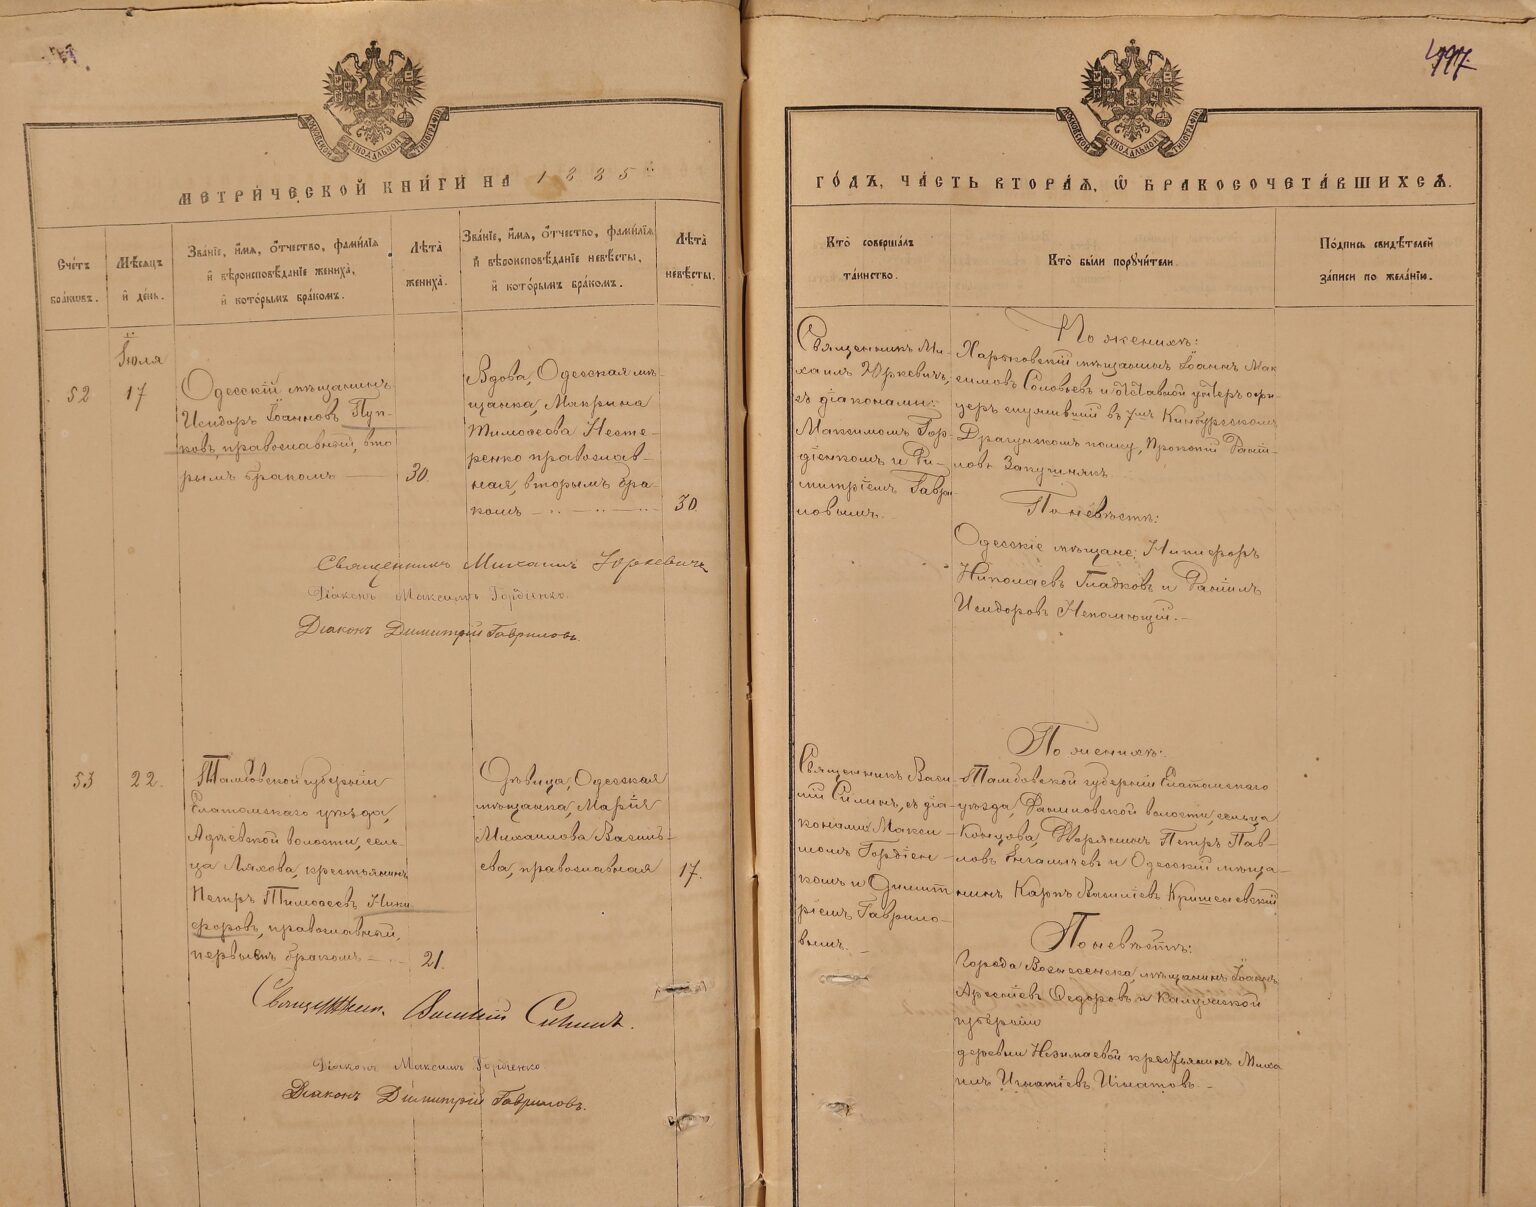 497.
МОСКОВСКОЙ СѴНОДАЛЬНОЙ ТИПОГРАФІИ
МОСКОВСКОЙ СѴНОДАЛЬНОЙ ТИПОГРАФІИ
МЕТРИ́ЧЕСКОЙ КНИ́ГИ НА 1885й
ГО́ДЪ, ЧА́СТЬ ВТОРА́Я, Ѽ БРАКОСОЧЕТА́ВШИХСЯ.
Сче́тъ
бра́ковъ.
Мѣ́сяцъ
и҆ де́нь.
Зва́нїе, и҆́мя, о҆́тчество, фами́лїя
и҆ вѣроисповѣ́данїе жениха̀,
и҆ кото́рымъ бра́комъ.
Лѣ́та
жениха̀.
Зва́нїе, и҆́мя, о҆́тчество, фами́лїя
и҆ вѣроисповѣ́данїе невѣ́сты,
и҆ кото́рымъ бра́комъ.
Лѣ́та
невѣ́сты.
Кто̀ соверша́лъ
та́инство.
Кто̀ бы́ли порꙋчи́тели.
По́дпись свидѣ́телей
за́писи по жела́нїю.
52
Іюля
17
Одесскій мѣщанинъ
Исидоръ Іоанновъ Пуп-
ковъ, православный, вто
рымъ бракомъ —
30.
Вдова, Одесская мѣ
щанка, Макрина
Тимоѳеова Несте-
ренко православ-
ная, вторымъ бра
комъ —
30.
Священникъ Ми-
хаилъ Юркевичъ,
съ діаконами:
Максимомъ Гор-
діенкомъ и Ди-
митріемъ Гаври
ловымъ.
По женихѣ:
Харьковскій мѣщанинъ Іоаннъ Мак
симовъ Соловьевъ и отставной унтеръ офи-
церъ служившій въ 7мъ Кинбурскомъ
Драгунскомъ полку, Прокопій Даніи-
ловъ Запушнякъ.
По невѣстѣ:
Одесскіе мѣщане: Никифоръ
Николаевъ Гладковъ и Даніилъ
Исидоровъ Непомющій.—
Священникъ Михаилъ Юркевичъ
Діаконъ Максимъ Гордіенко.
Діаконъ Димитрій Гавриловъ.
53
22.
Тамбовской губерніи
Елатомскаго уѣзда,
Адѣевской волости, сель-
ца Ляхова, крестьянинъ
Петръ Тимоѳеевъ Ники
форовъ, православный,
первымъ бракомъ —
21.
Дѣвица, Одесская
мѣщанка, Марія
Михаилова Василь-
ева, православная
17.
Священникъ Васи-
лій Силинъ, съ діа-
конами Макси-
момъ Гордіен-
комъ и Димит
ріемъ Гаврило-
вымъ. —
По женихѣ:
Тамбовской губерніи Елатомскаго
уѣзда, Даниловской волости, сельца
Концова, Дворянинъ Петръ Пав-
ловъ Енгалычевъ и Одесскій мѣща-
нинъ Карпъ Василіевъ
По невѣстѣ:
Города Вознесенска, мѣщанинъ Іоаннъ
Арсеніевъ Ѳедоровъ и Калужской
губерніи
деревни крестьянинъ Миха
илъ Игнатіевъ Игнатовъ —
Священникъ Василій Силинъ.
Діаконъ Максимъ Гордіенко
Діаконъ Димитрій Гавриловъ.